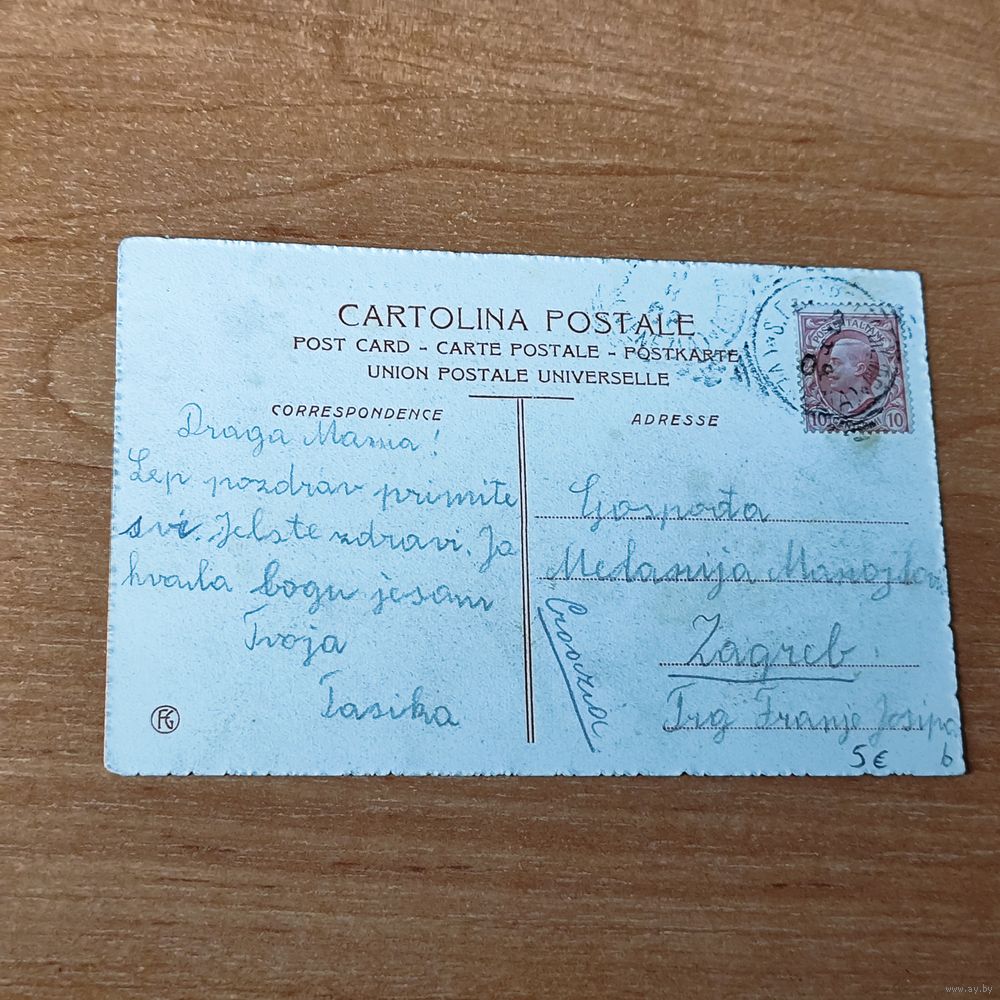 CARTOLINA POSTALE
POST CARD - CARTE POSTALE - POSTKARTE
UNION POSTALE UNIVERSELLE
CORRESPONDENCE
Draga Mama!
Lep pozdrav primite
svi. Jelste zdravi. Ja
hvala bogu jesam
Tvoja
Tasika
FG
ADRESSE
POSTE ITALIANE
10 10
Gospođa
Melanija Manojlov
Zagreb
Croazia
Trg Franje Josipa
5€ b
www.ay.by